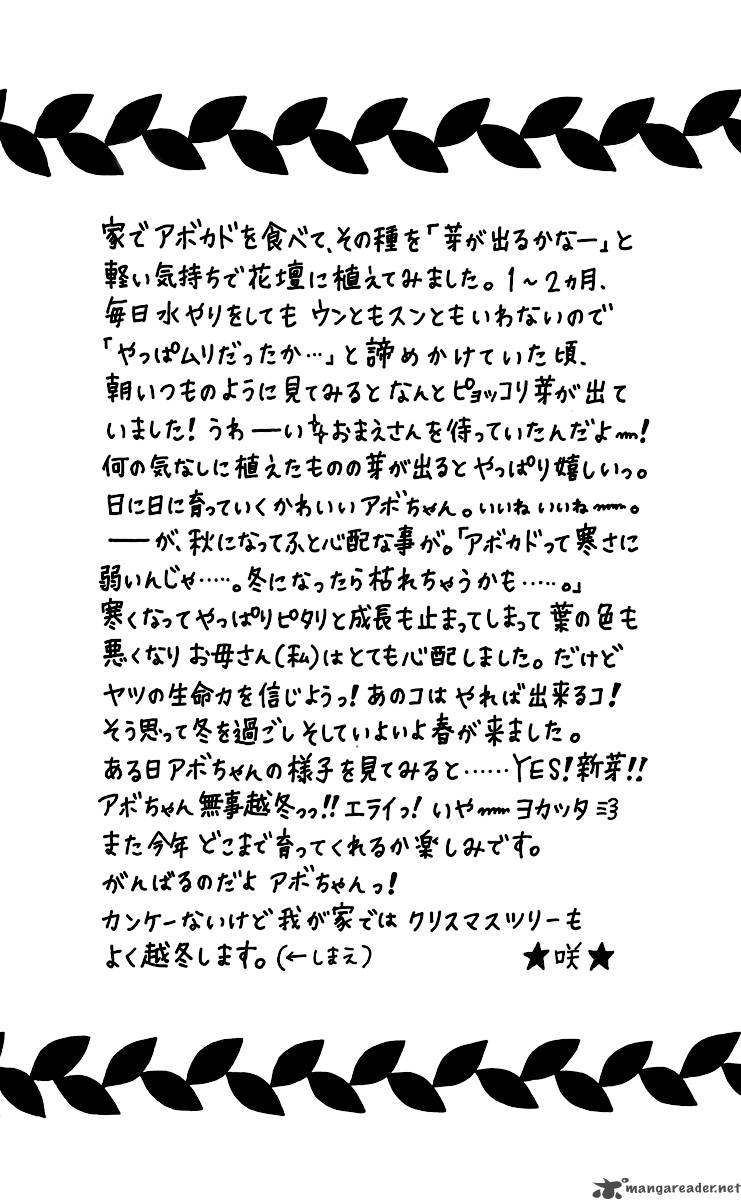 家でアボカドを食べて、その種を「芽が出るかなー」と
軽い気持ちで花壇に植えてみました。1～2ヵ月、
毎日水やりをしても ウンともスンともいわないので
「やっぱムリだったか…」と諦めかけていた頃、
朝いつものように見てみるとなんとピョッコリ芽が出て
いました! うわーい おまえさんを待っていたんだよー!
何の気なしに植えたものの芽が出るとやっぱり嬉しいっ。
日に日に育っていくかわいいアボちゃん。いいねいいねー。
――が、秋になってふと心配な事が。「アボカドって寒さに
弱いんじゃ……。冬になったら枯れちゃうかも……。」
寒くなってやっぱりピタリと成長も止まってしまって葉の色も
悪くなりお母さん(私)はとても心配しました。だけど
ヤツの生命力を信じようっ! あのコは やれば出来るコ!
そう思って冬を過ごしそしていよいよ春が来ました。
ある日アボちゃんの様子を見てみると……YES!新芽!!
アボちゃん無事越冬っっ!! エライっ! いやー ヨカッタ
また今年 どこまで育ってくれるか楽しみです。
がんばるのだよ アボちゃんっ!
カンケーないけど我が家では クリスマスツリーも
よく越冬します。(←しまえ) ★咲★
mangareader.net